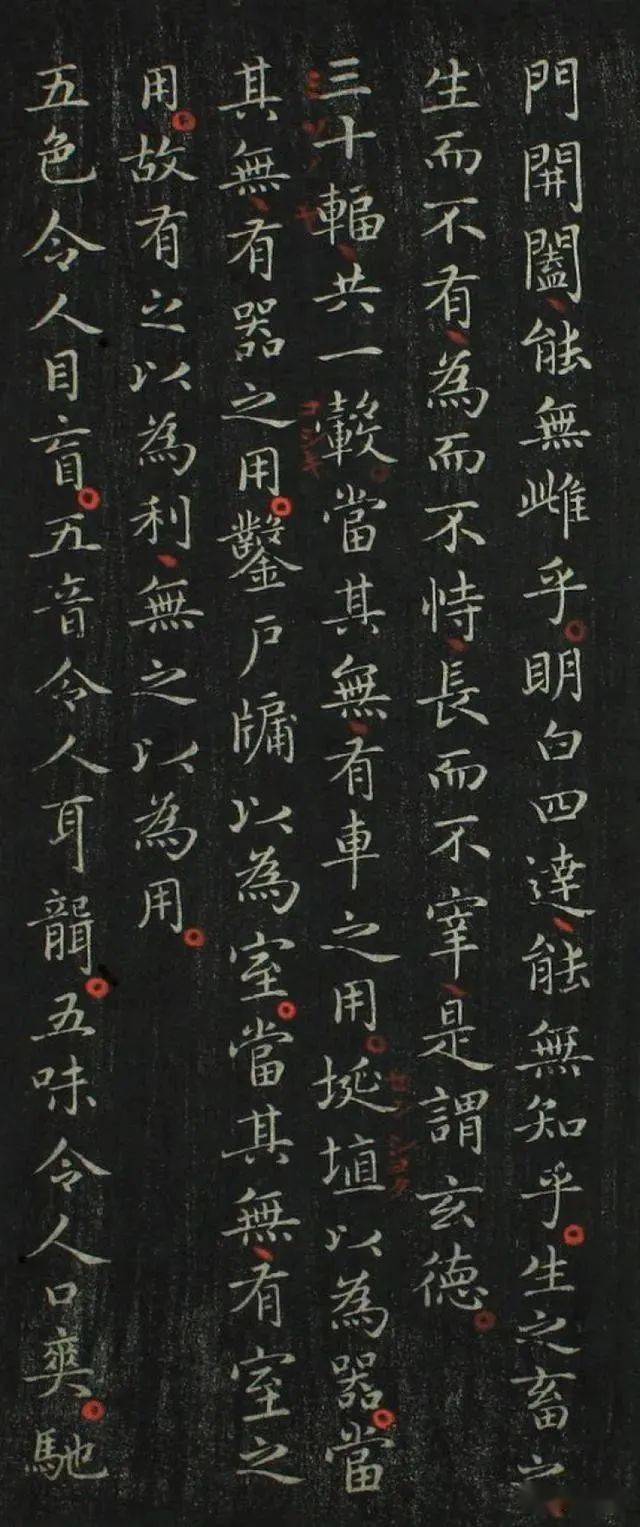 門開闔、能無雌乎。明白四達、能無知乎。生之畜之、
生而不有、為而不恃、長而不宰、是謂玄德。
三十輻、共一轂。當其無、有車之用。埏埴以為器。當
其無、有器之用。鑿戶牖以為室。當其無、有室之
用。故有之以為利、無之以為用。
五色令人目盲。五音令人耳聾。五味令人口爽。馳